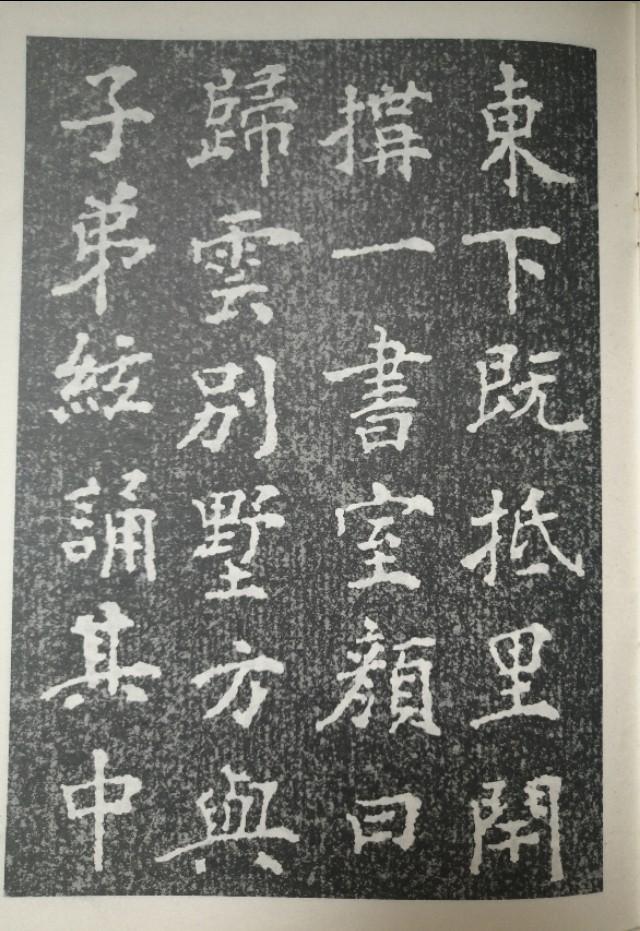 東下既抵里閈
搆一書室顔曰
歸雲別墅方與
子弟絃誦其中